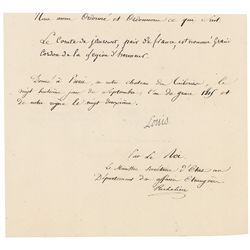 Nous avons Ordonné et Ordonnons ce qui suit.
Le Comte de pair de france, est nommé Grand
Cordon de la Légion d'honneur.
Donné à Paris, en notre château des Tuileries, le
vingt huitième jour de Septembre, l'an de grace 1815 et
de notre règne le vingt unième.
Louis
Par le Roi
Le Ministre Secrétaire d'Etat au
Département des affaires Etrangères
Richelieu